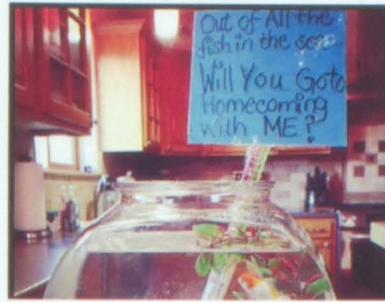 Out of All the
fish in the sea
Will You Goto
Homecoming
with ME?